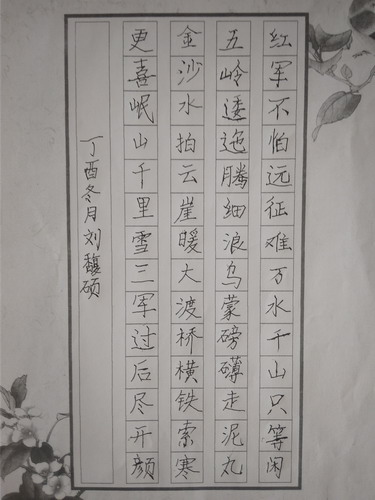 红军不怕远征难万水千山只等闲
五岭逶迤腾细浪乌蒙磅礴走泥丸
金沙水拍云崖暖大渡桥横铁索寒
更喜岷山千里雪三军过后尽开颜
丁酉冬月刘馥硕